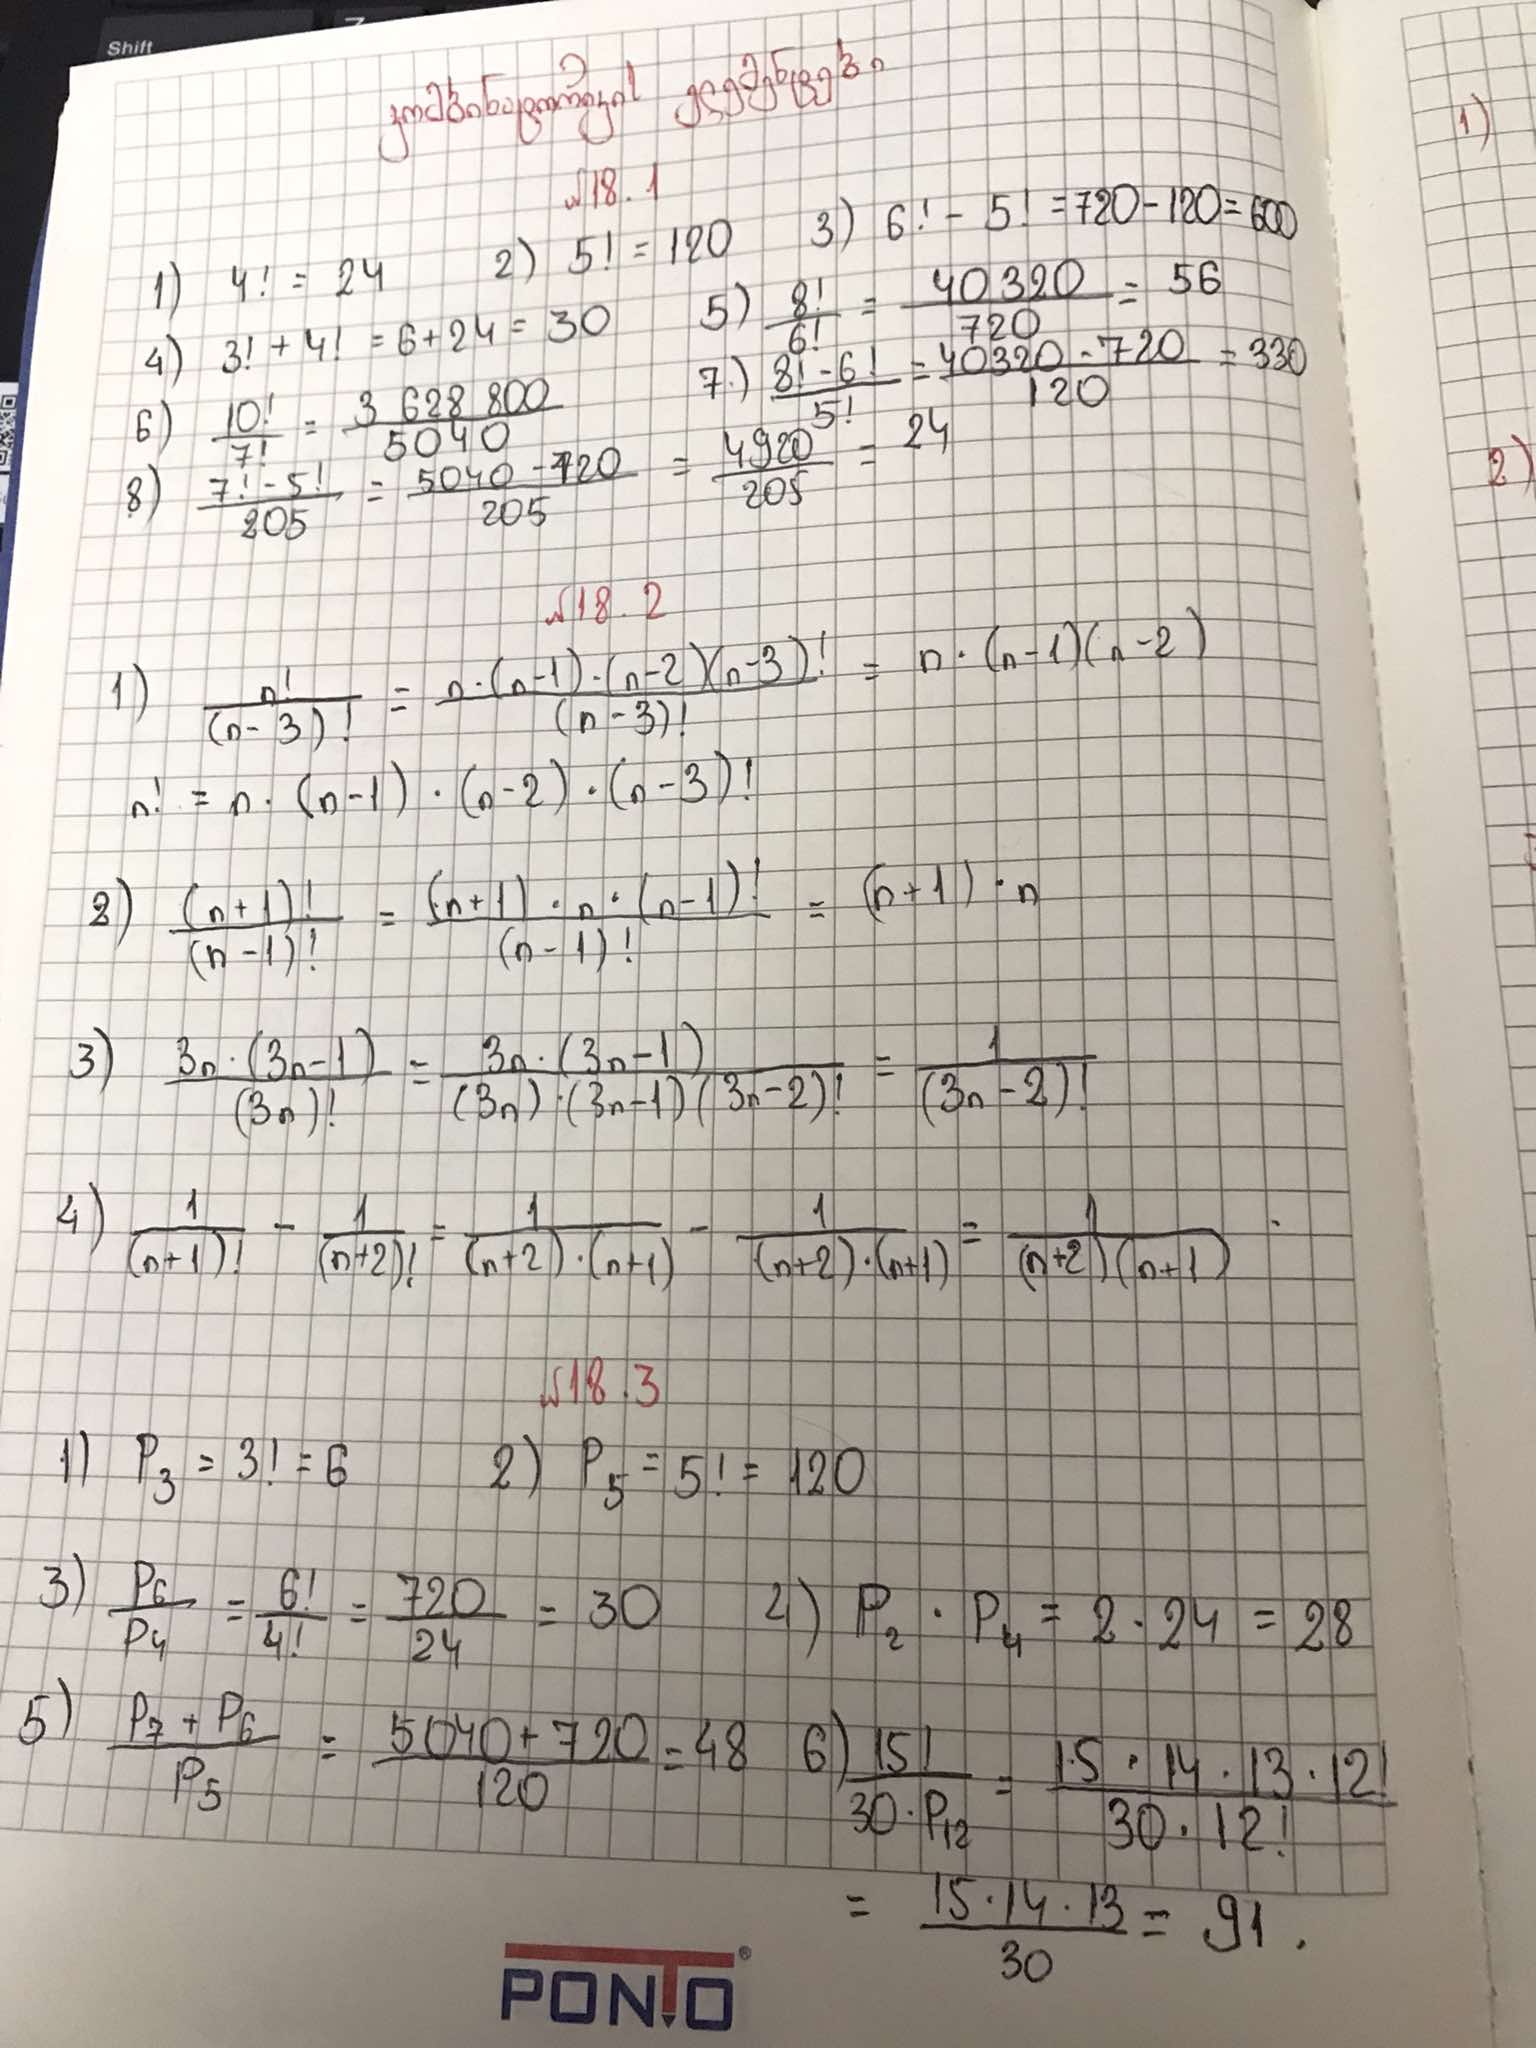 Shift
კომბინატორიკის ელემენტები
№18.1
1) 4! = 24 2) 5! = 120 3) 6! - 5! = 720 - 120 = 600
4) 3! + 4! = 6 + 24 = 30 5) 8!/6! = 40320/720 = 56
6) 10!/7! = 3 628 800/5040 7.) 8! - 6!/5! = 40320 - 720/120 = 330
8) 7! - 5!/205 = 5040 - 120/205 = 4920/205 = 24
№18.2
1) n!/(n-3)! = n·(n-1)·(n-2)(n-3)!/(n-3)! = n·(n-1)(n-2)
n! = n·(n-1)·(n-2)·(n-3)!
2) (n+1)!/(n-1)! = (n+1)·n·(n-1)!/(n-1)! = (n+1)·n
3) 3n·(3n-1)/(3n)! = 3n·(3n-1)/(3n)·(3n-1)(3n-2)! = 1/(3n-2)!
4) 1/(n+1)! - 1/(n+2)! = 1/(n+2)·(n+1) - 1/(n+2)·(n+1) = 1/(n+2)(n+1)
№18.3
1) P₃ = 3! = 6 2) P₅ = 5! = 120
3) P₆/P₄ = 6!/4! = 720/24 = 30 4) P₂·P₄ = 2·24 = 28
5) P₇ + P₆/P₅ = 5040 + 720/120 = 48 6) 15!/30·P₁₂ = 15·14·13·12!/30·12!
= 15·14·13/30 = 91.
PONTO®
1)
2)